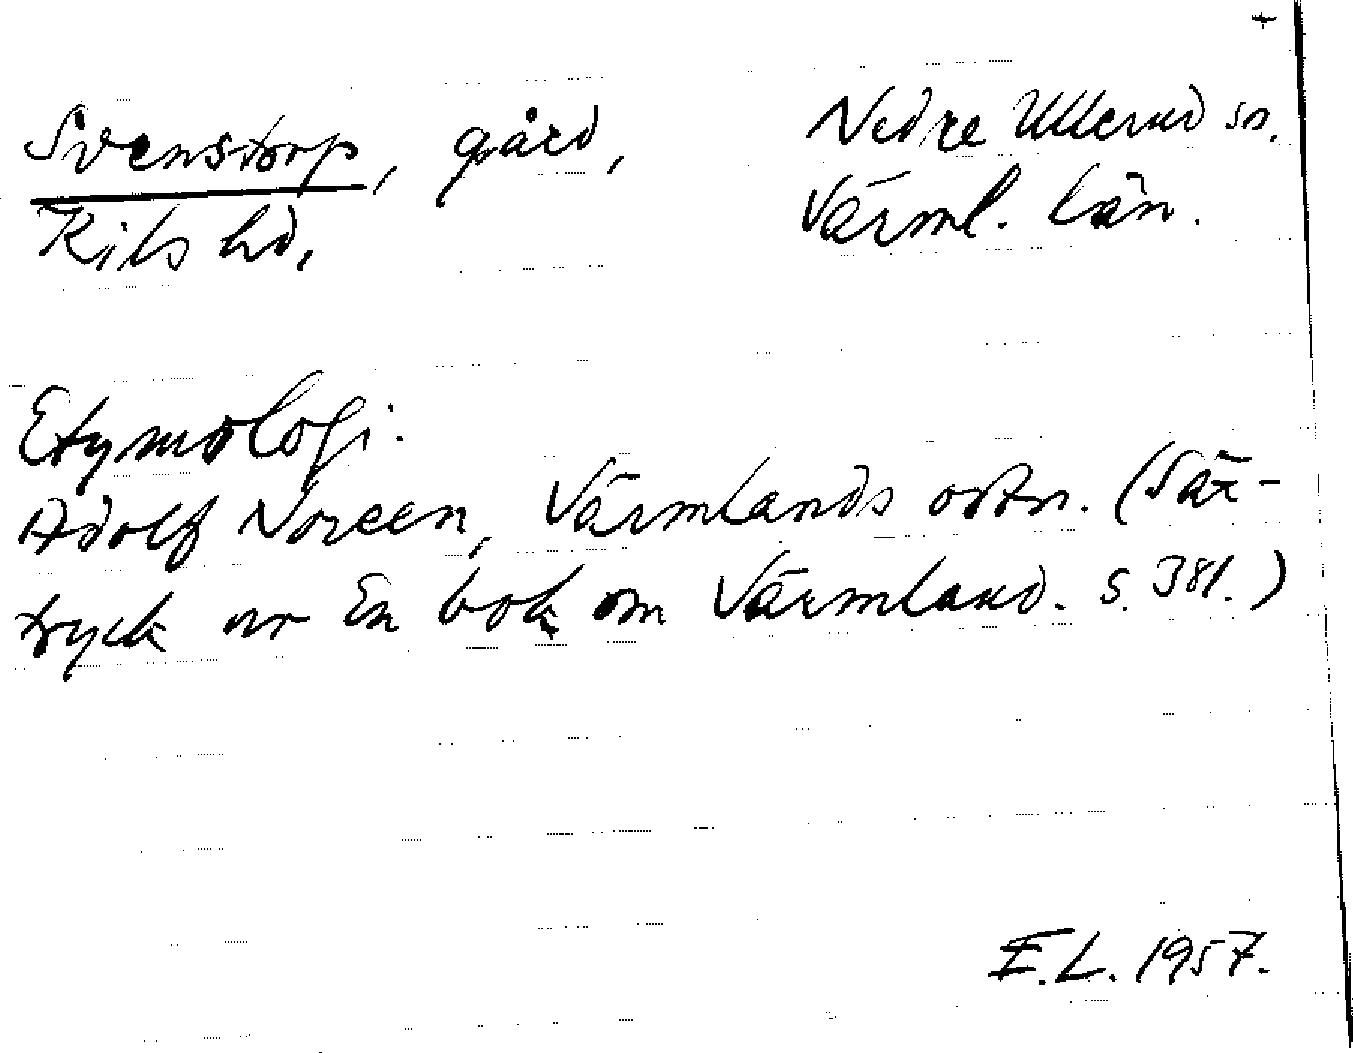 Svenstorp, gård, Nedre Ullerud sn.
Kils hd, Värml. län.
Etymologi.
Adolf Noreen, Värmlands ortn. (Sär-
tryck ur En bok om Värmland. S. 381.)
E.L. 1957.